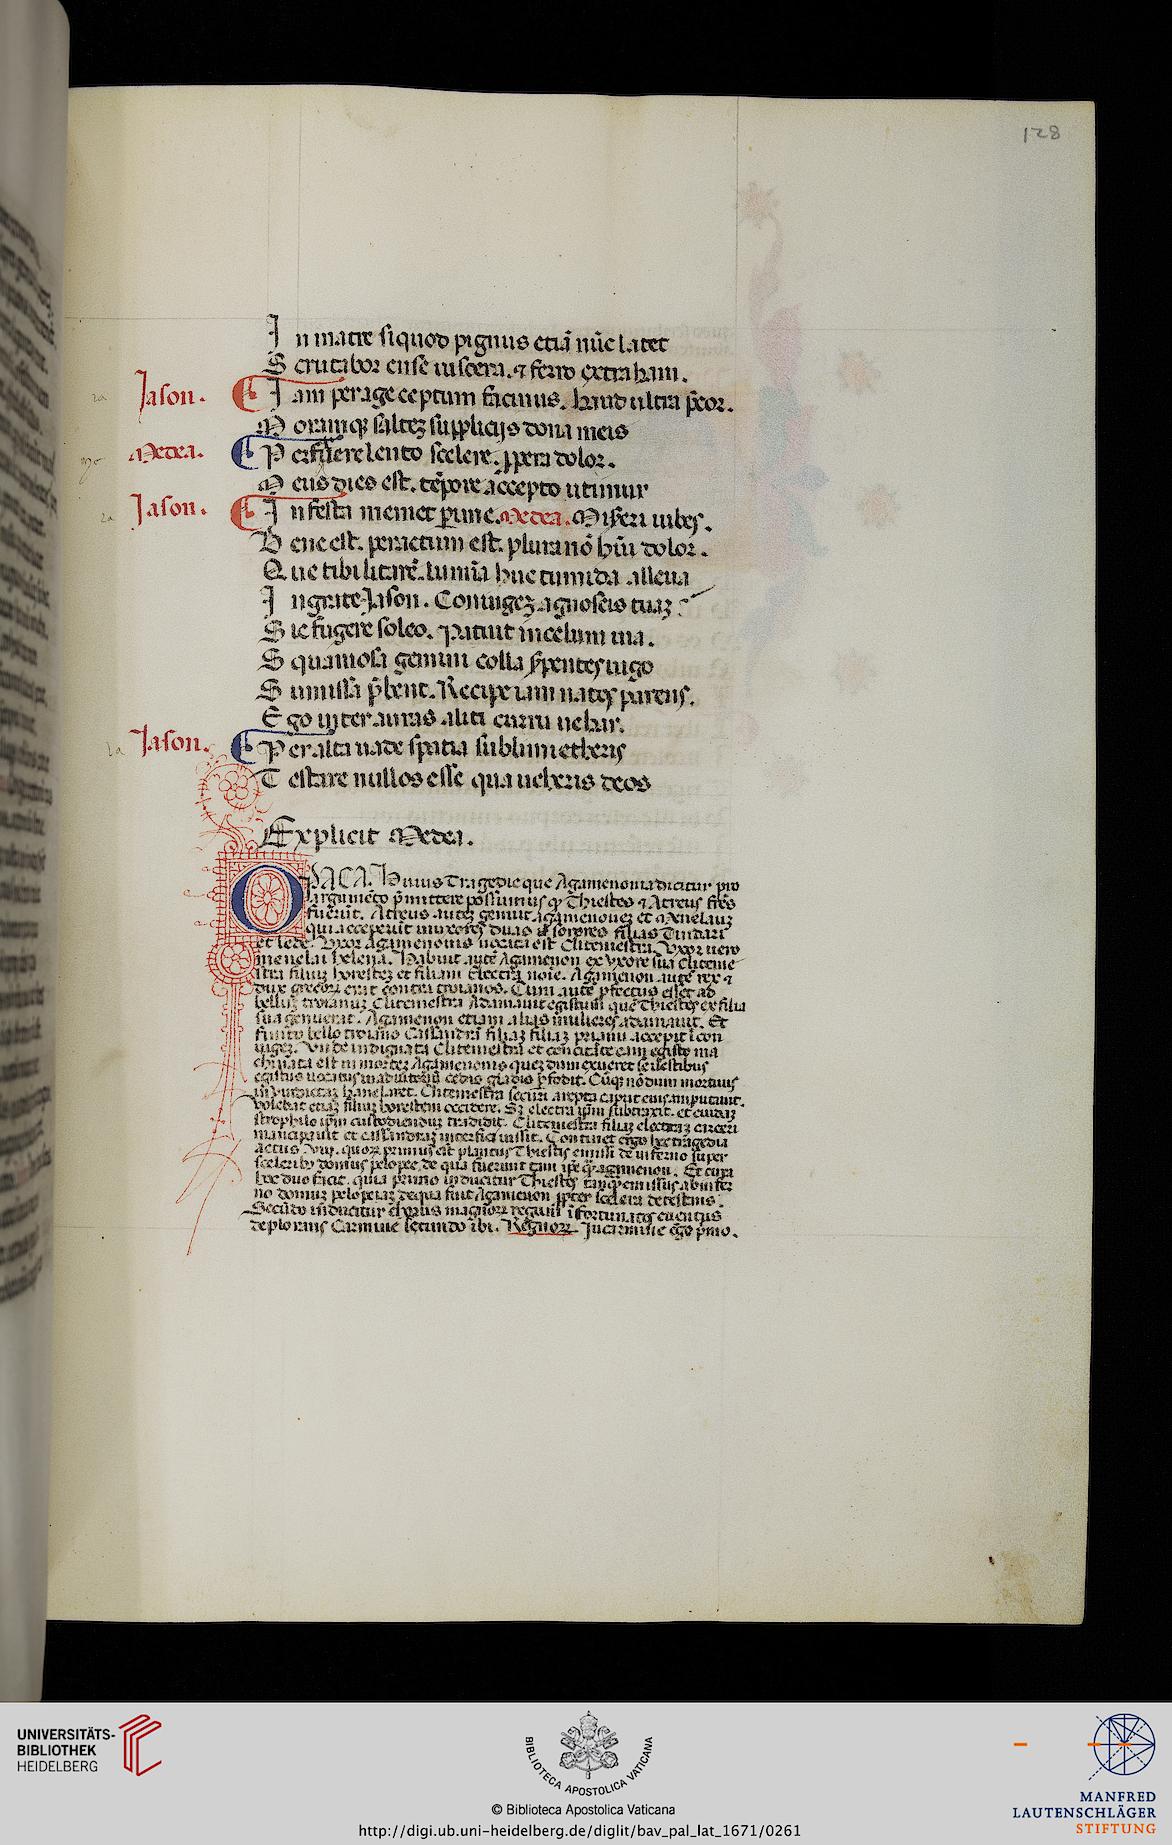 128
In matre siquod pignus etiã nũc latet
Scrutabor ense uiscera. ⁊ ferro extraham.
Jason. Iam perage ceptum facinus. haud ultra p̃cor.
Moramq̧ saltez supplicijs dona meis
Medea. Perfruere lento scelere. ꝓpera dolor.
Meus dies est. tẽpore accepto utimur
Jason. Infesta memet perime. Medea. Misereri iubes.
Bene est. peractum est. plura nõ hũi dolor.
Que tibi litarẽ. lumĩa huc tumida alleua
Ingrate Jason. Coniugez agnoscis tuaz
Sic fugere soleo. Patuit in celum uia.
Squamosa gemini colla serpentes iugo
Sumissa p̃bent. Recipe iam natos parens.
Ego inter auras aliti curru uehar.
Jason. Per alta uade spatia sublim etheris
Testare nullos esse qua ueheris deos
Explicit Medea.
OPACA. Huius Tragedie que Agamenonia dicitur pro
argumẽto p̃mittere possumus ꝙ Thiestes ⁊ Atreus fr̃es
fuerũt. Atreus autez genuit agamenonez et Menelauz
qui acceperũt in uxores duas sorores filias Tindari
et lede. Vxor Agamenonis uocata est Clitemestra. Vxor uero
menelai helena. Habuit autẽ Agamenon ex Vxore sua Cliteme
stra filiuz horestez et filiam Electrã noĩe. Agamenon autẽ rex ⁊
dux grecorũ erat contra troianos. Cum autẽ p̃fectus esset ad
belluz troianuz Clitemestra Adamauit egistum quẽ Thiestes ex filia
sua genuerat. Agamenon etiam alias mulieres adamauit. Et
finito bello troiano Cassandrã filiaz priami accepit ĩ con
iugez. Vnde indignata Clitemestra et concitate eam egisto ma
chinata est in mortez Agamenonis quez dum exueret se uestibus
uolebat etiaz filium horestem occidere. Sz electra ip̃m subtraxit. et cuidaz
strophilo ip̃m custodienduz tradidit. Clitemestra filiaz electraz carceri
mancipauit et cassandraz interfici iussit. Continet ergo hec tragedia
actus
sceleribꝫ domus pelopee, de qua fuerunt tam ip̃e q̃ agamenon. Et circa
hec duo facit. quia primo inducitur Thiestes tamq̃ emissus ab infer
no domuz pelopeiaz de qua fuit Agamenon ꝓpter scelera detestans.
Secũdo inducitur chorus magnoꝝ regum ĩfortunatos euentus
deplorans Carmine secundo ibi. Regnoꝝ In carmine ergo p̃mo.
UNIVERSITÄTS-
BIBLIOTHEK
HEIDELBERG
BIBLIOTECA APOSTOLICA VATICANA
© Biblioteca Apostolica Vaticana
http://digi.ub.uni-heidelberg.de/diglit/bav_pal_lat_1671/0261
MANFRED
LAUTENSCHLÄGER
STIFTUNG